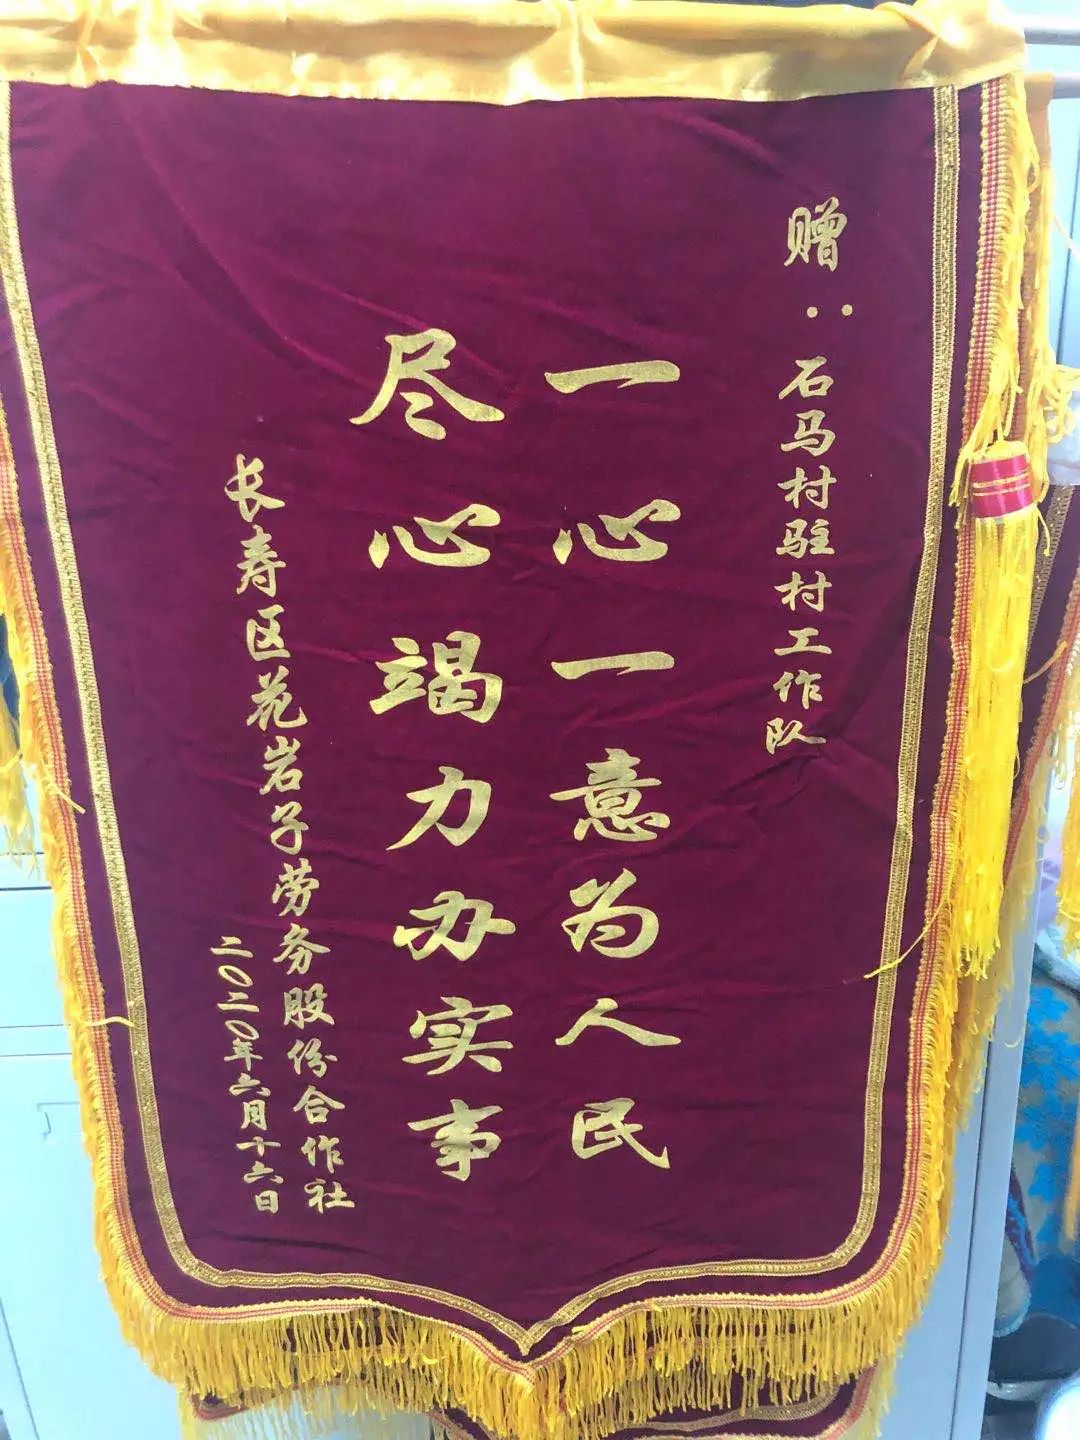 赠：石马村驻村工作队
一心一意为人民
尽心竭力办实事
长寿区花岩子劳务股份合作社
二〇二〇年六月十六日